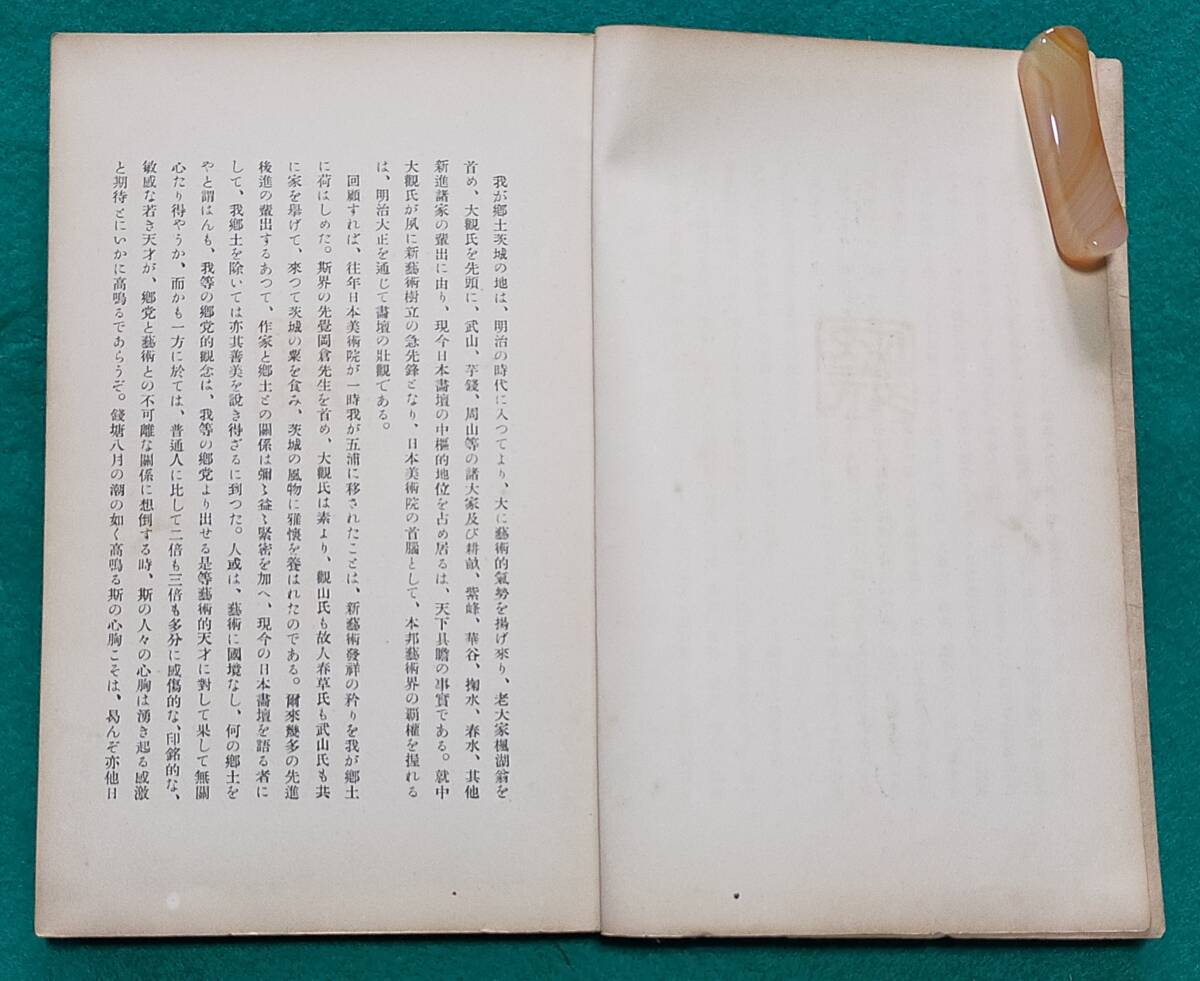 我が鄕土茨城の地は、明治の時代に入つてより、大に藝術的氣勢を揚げ來り、老大家楓湖翁を
首め、大觀氏を先頭に、武山、芋錢、周山等の諸大家及び耕畝、紫峰、華谷、掬水、春水、其他
新進諸家の輩出に由り、現今日本畵壇の中樞的地位を占め居るは、天下具瞻の事實である。就中
大觀氏が夙に新藝術樹立の急先鋒となり、日本美術院の首腦として、本邦藝術界の覇權を握れる
は、明治大正を通じて畵壇の壯觀である。
回顧すれば、往年日本美術院が一時我が五浦に移されたことは、新藝術發祥の矜りを我が鄕土
に荷はしめた。斯界の先覺岡倉先生を首め、大觀氏は素より、觀山氏も故人春草氏も武山氏も共
に家を擧げて、來つて茨城の粟を食み、茨城の風物に雅懷を養はれたのである。爾來幾多の先進
後進の輩出するあつて、作家と鄕土との關係は彌〻益〻緊密を加へ、現今の日本畵壇を語る者に
して、我鄕土を除いては亦其善美を說き得ざるに到つた。人或は、藝術に國境なし、何の鄕土を
やと謂はんも、我等の鄕党的觀念は、我等の鄕党より出せる是等藝術的天才に對して果して無關
心たり得やうか、而かも一方に於ては、普通人に比して二倍も三倍も多分に感傷的な、印銘的な、
敏感な若き天才が、鄕党と藝術との不可離な關係に想倒する時、斯の人々の心胸は湧き起る感激
と期待とにいかに高鳴るであらうぞ。錢塘八月の潮の如く高鳴る斯の心胸こそは、曷んぞ亦他日